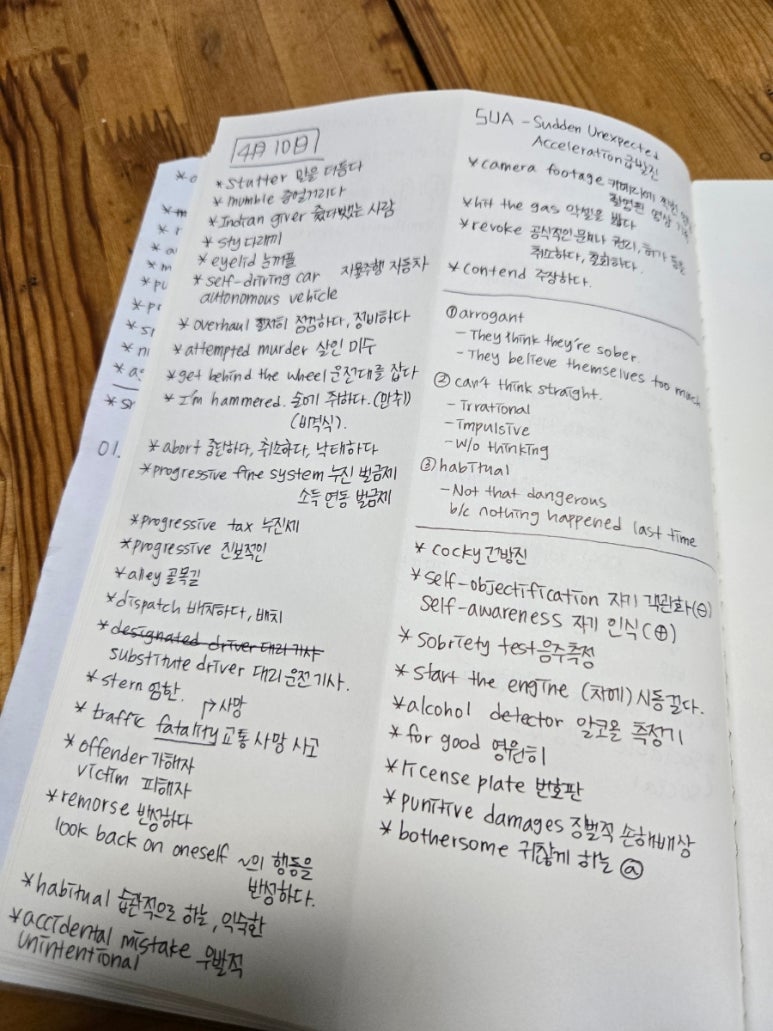 4月 10日
*stutter 말을 더듬다
*mumble 중얼거리다
*Indian giver 줬다뺏는 사람
*sty 다래끼
*eyelid 눈꺼풀
*self-driving car 자율주행 자동차
autonomous vehicle
*overhaul 철저히 점검하다, 정비하다
*attempted murder 살인 미수
*get behind the wheel 운전대를 잡다
*I'm hammered. 술에 취하다. (만취)
(비격식).
01. *abort 중단하다, 취소하다, 낙태하다
*progressive fine system 누진 벌금제
소득 연동 벌금제
*progressive tax 누진제
*progressive 진보적인
*alley 골목길
*dispatch 배치하다, 배치
*designated driver 대리 기사
substitute driver 대리운전 기사.
*stern 엄한.
→사망
*traffic fatality 교통 사망 사고
*offender 가해자
victim 피해자
*remorse 반성하다
look back on oneself ~의 행동을
반성하다.
*habitual 습관적으로 하는, 익숙한
*accidental mistake 우발적
unintentional
SUA - Sudden Unexpected
Acceleration 급발진
*camera footage 카메라에 찍힌
촬영된 영상
*hit the gas 악셀을 밟다
*revoke 공식적인 문제나 권리, 허가 등을
취소하다, 철회하다.
*contend 주장하다.
①arrogant
- They think they're sober.
- They believe themselves too much
② can't think straight.
- Irrational
- impulsive
- w/o thinking
③habitual
- Not that dangerous
b/c nothing happened last time
*cocky 건방진
*self-objectification 자기 객관화(⊖)
self-awareness 자기 인식(⊕)
*sobriety test 음주측정
*start the engine (차에) 시동걸다.
*alcohol detector 알코올 측정기
*for good 영원히
*license plate 번호판
*punitive damages 징벌적 손해배상
*bothersome 귀찮게 하는 ⓐ